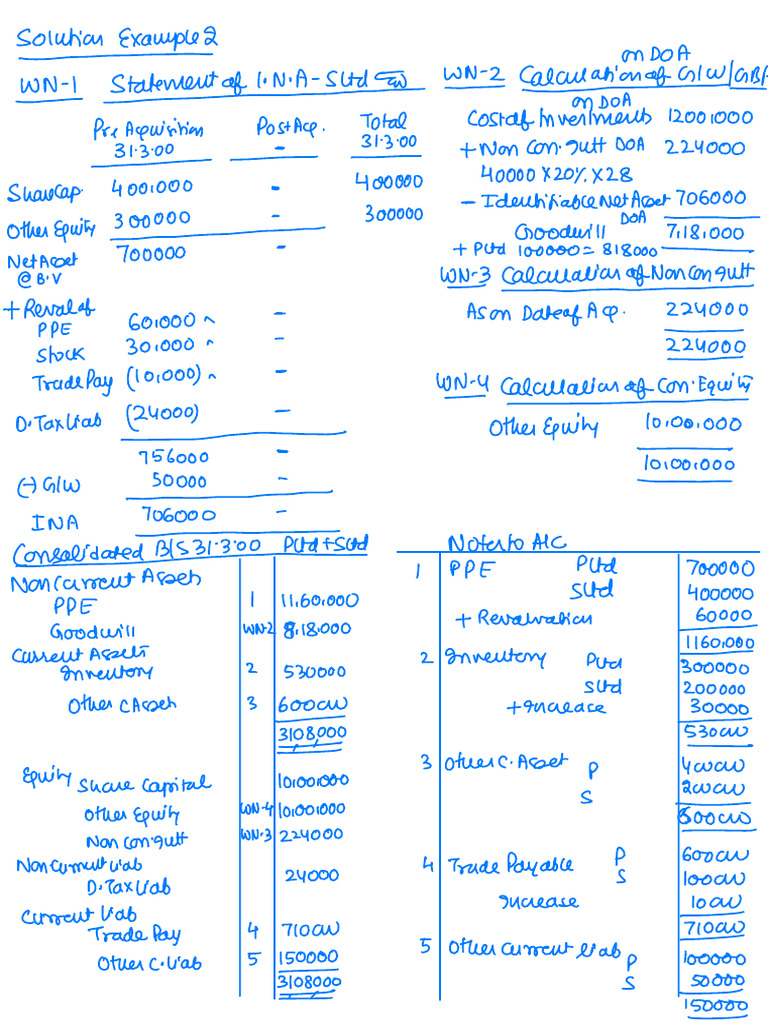 Solution Example 2
WN-1 Statement of I.N.A - SLtd
Pre Acquisition Post Acq. Total
31.3.00 - 31.3.00
Share Cap. 400,000 - 400000
Other Equity 300000 - 300000
Net Asset 700000 -
@ B.V
+ Reval of
PPE 60,000 -
Stock 30,000 -
Trade Pay (10,000) -
D.Tax Liab (24000) -
756000 -
(-) G/W 50000 -
INA 706000 -
on DOA
WN-2 Calculation of G/W/GBP
on DOA
Cost of Investments 1200,000
+ Non Con. Intt DOA 224000
40000 X 20% X 28
- Identifiable Net Asset 706000
DOA
Goodwill 7,18,000
+ PLtd 100000 = 818000
WN-3 Calculation of Non Con Intt
As on Date of Acq. 224000
224000
WN-4 Calculation of Con. Equity
Other Equity 10,00,000
10,00,000
Consolidated B/S 31.3.00 PLtd + SLtd
Non Current Assets
PPE 1 11,60,000
Goodwill WN-2 8,18,000
Current Assets
Inventory 2 530000
Other C Asset 3 600000
3108,000
Equity Share Capital 10,00,000
Other Equity WN-4 10,00,000
Non Con. Intt WN-3 224000
Non Current Liab
D.Tax Liab 24000
Current Liab
Trade Pay 4 710000
Other C. Liab 5 150000
3108000
Notes to A/C
1 PPE PLtd 700000
SLtd 400000
+ Revaluation 60000
1160,000
2 Inventory PLtd 300000
SLtd 200000
+ Increase 30000
530000
3 Other C. Asset P 400000
S 200000
600000
4 Trade Payable P 600000
S 100000
Increase 10000
710000
5 Other Current Liab
P 100000
S 50000
150000